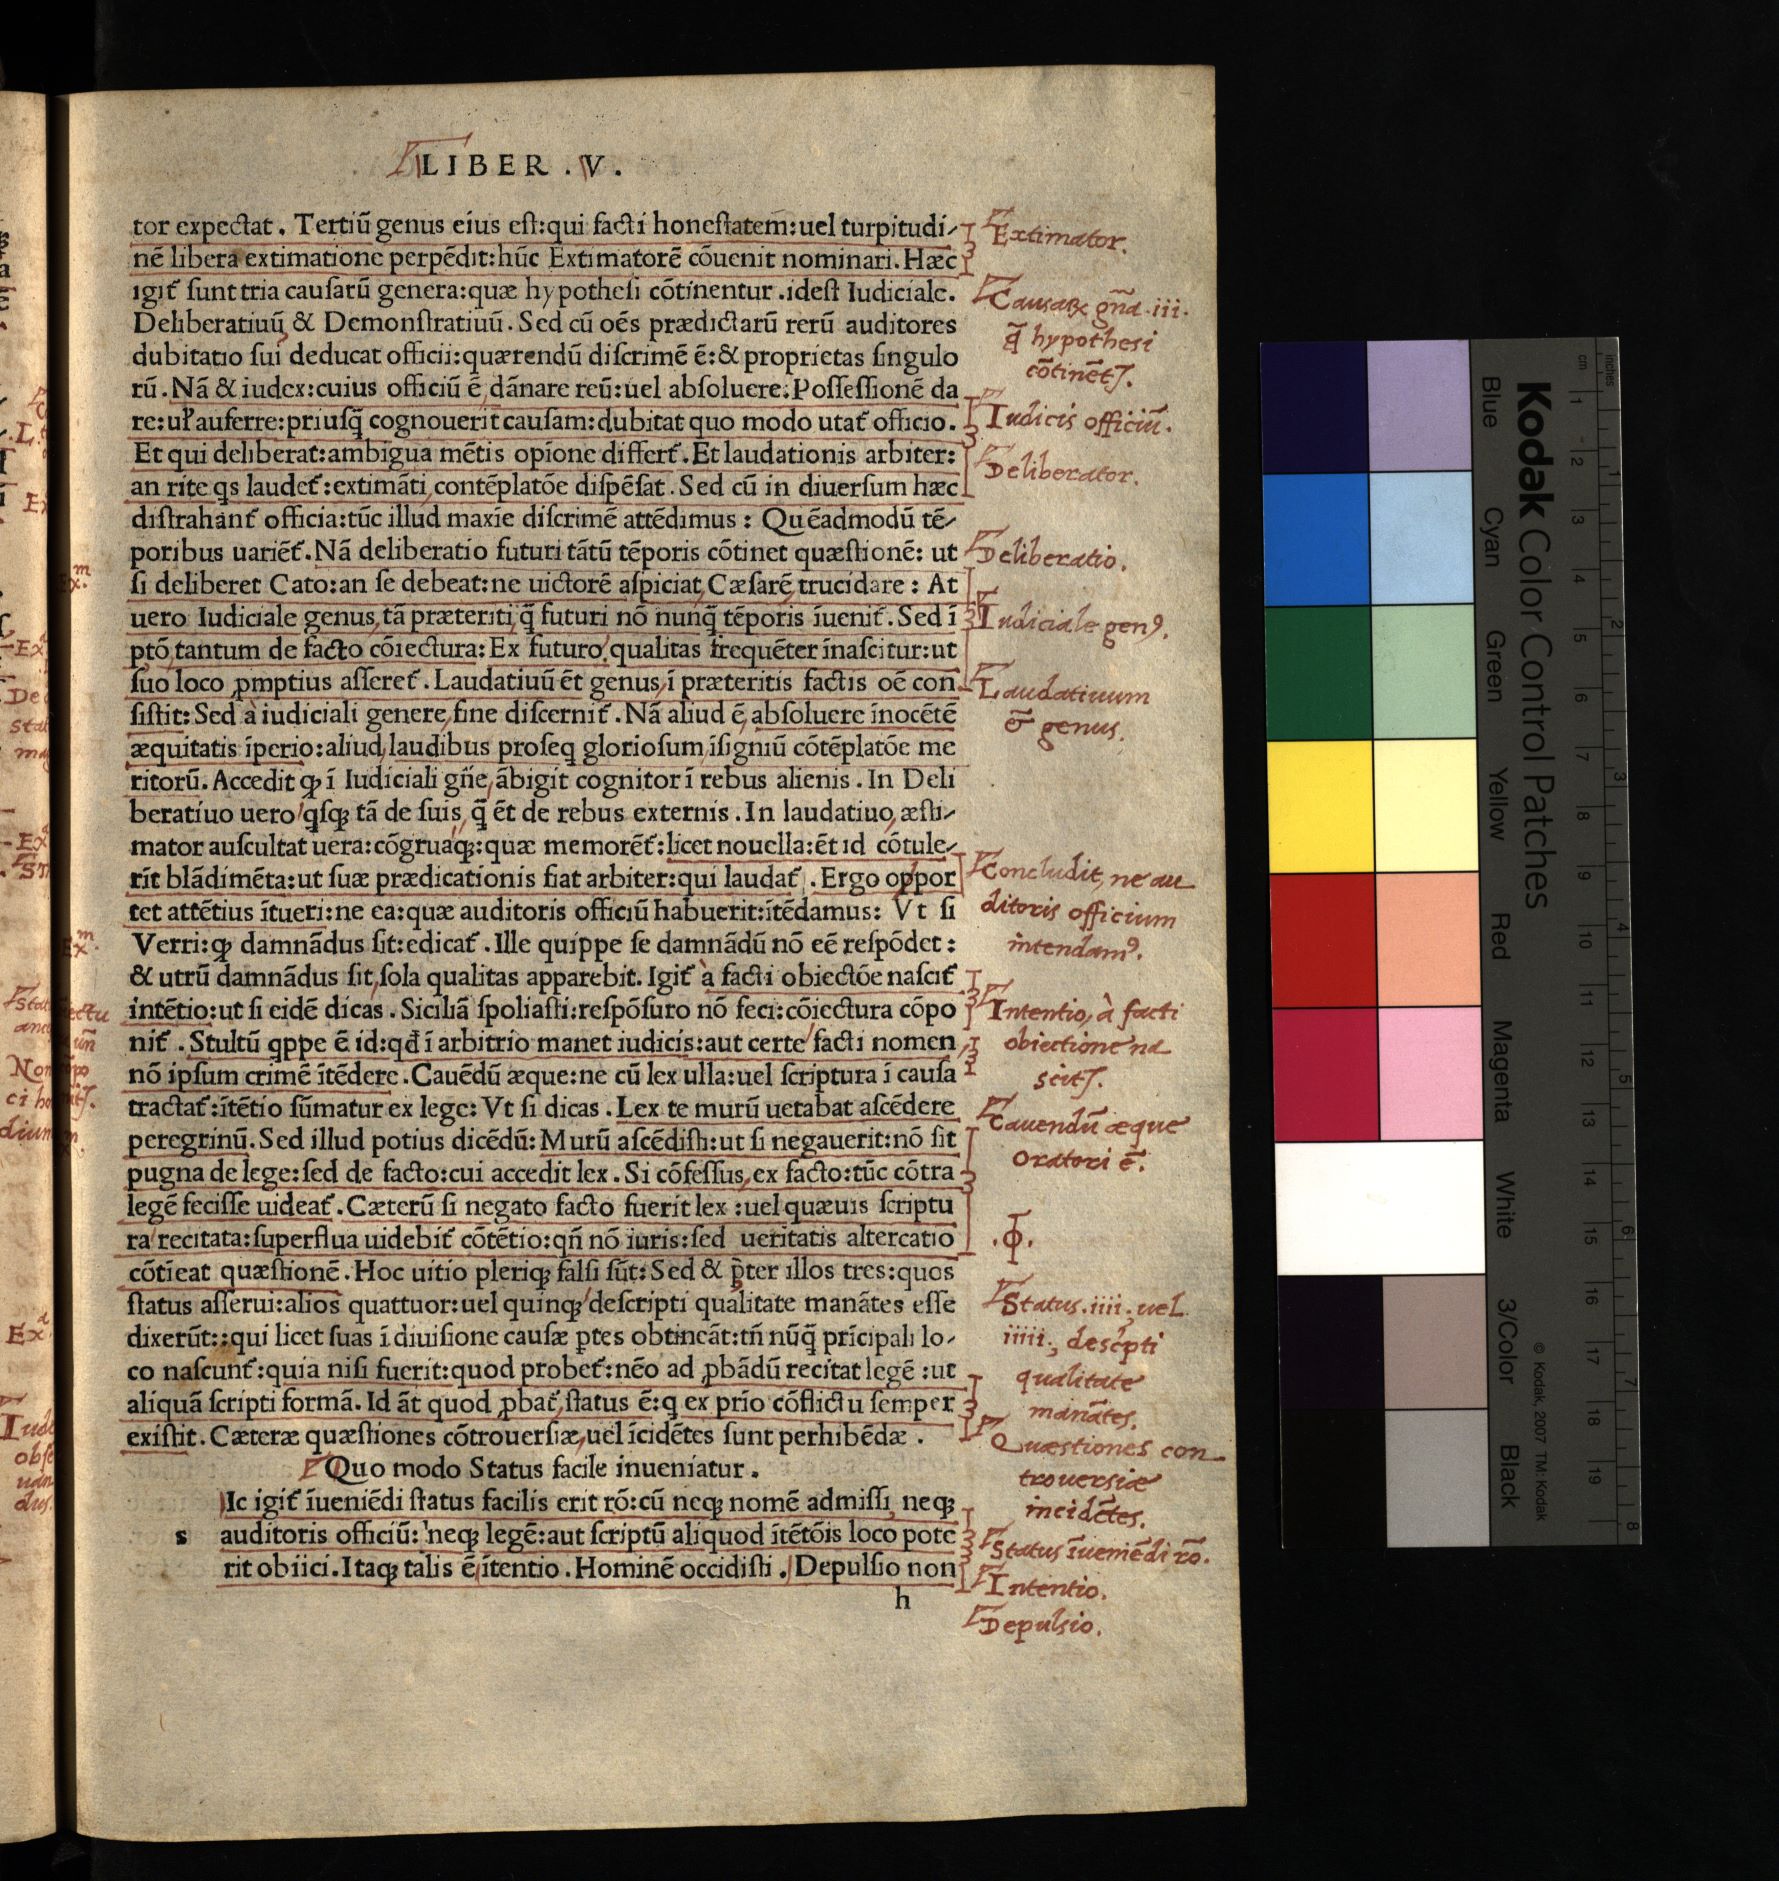 LIBER . V .
tor expectat . Tertiū genus eius eſt:qui facti honeſtatem:uel turpitudi-
nē libera extimatione perpēdit:hūc Extimatorē cōuenit nominari. Hæc
igit̃ ſunt tria cauſarū genera:quæ hypotheſi cōtinentur .ideſt Iudiciale.
Deliberatiuū & Demonſtratiuū . Sed cū oēs prædictarū rerū auditores
dubitatio ſui deducat officii:quærendū diſcrimē ē:& proprietas ſingulo
rū . Nā & iudex:cuius officiū ē dānare reū:uel abſoluere:Poſſeſſionē da
re:uł auferre:priuſq̃ cognouerit cauſam:dubitat quo modo utat̃ officio.
Et qui deliberat:ambigua mētis opione differt̃ . Et laudationis arbiter:
an rite qs laudet̃:extimāti contēplatōe diſpēſat . Sed cū in diuerſum hæc
diſtrahānt̃ officia:tūc illud maxīe diſcrimē attēdimus : Quēadmodū tē-
poribus uariēt̃ . Nā deliberatio futuri tātū tēporis cōtinet quæſtionē: ut
ſi deliberet Cato:an ſe debeat:ne uictorē aſpiciat Cæſarē trucidare : At
uero Iudiciale genus tā præteriti q̃ futuri nō nunq̃ tēporis īuenit̃ . Sed ī
ptō tantum de facto cōiectura: Ex futuro qualitas frequēter īnaſcitur:ut
ſuo loco ꝓmptius aſſeret̃ . Laudatiuū ēt genus ī præteritis factis oē con
ſiſtit: Sed à iudiciali genere fine diſcernit̃ . Nā aliud ē abſoluere īnocētē
æquitatis īperio:aliud laudibus proſeq glorioſum īſigniū cōtēplatōe me
ritorū. Accedit ꝙ ī Iudiciali gn̄e ābigit cognitor ī rebus alienis . In Deli
beratiuo uero qſꝗ tā de ſuis q̃ ēt de rebus externis . In laudatiuo æſti-
mator auſcultat uera:cōgruaqꝫ:quæ memorēt̃:licet nouella:ēt id cōtule-
rīt blādimēta:ut ſuæ prædicationis fiat arbiter:qui laudat̃ . Ergo oppor
tet attētius ītueri:ne ea:quæ auditoris officiū habuerit:ītēdamus: Vt ſi
Verri:ꝙ damnādus ſit:edicat̃ . Ille quippe ſe damnādū nō eē reſpōdet :
& utrū damnādus ſit ſola qualitas apparebit. Igit̃ à facti obiectōe naſcit̃
intētio:ut ſi eidē dicas . Siciliā ſpoliaſti:reſpōſuro nō feci:cōiectura cōpo
nit̃ . Stultū qppe ē id:qđ ī arbitrio manet iudicis:aut certe facti nomen
nō ipſum crimē ītēdere . Cauēdū æque:ne cū lex ulla:uel ſcriptura ī cauſa
tractat̃:ītētio ſūmatur ex lege: Vt ſi dicas . Lex te murū uetabat aſcēdere
peregrinū. Sed illud potius dicēdū: Murū aſcēdiſti:ut ſi negauerit:nō ſit
pugna de lege:ſed de facto:cui accedit lex . Si cōfeſſus ex facto:tūc cōtra
legē feciſſe uideat̃ . Cæterū ſi negato facto fuerit lex :uel quæuis ſcriptu
ra recitata:ſuperflua uidebit̃ cōtētio:qn̄ nō iuris:ſed ueritatis altercatio
cōtīeat quæſtionē . Hoc uitio pleriqꝫ falſi ſūt: Sed & p̄ter illos tres:quos
ſtatus aſſerui:alios quattuor:uel quinqꝫ deſcripti qualitate manātes eſſe
dixerūt::qui licet ſuas ī diuiſione cauſæ ꝑtes obtineāt:tn̄ nūq̃ prīcipali lo-
co naſcunt̃:quia niſi fuerit:quod probet̃:nēo ad ꝓbādū recitat legē :ut
aliquā ſcripti formā. Id āt quod ꝓbat̃ ſtatus ē:q ex prīo cōflictu ſemper
exiſtit . Cæteræ quæſtiones cōtrouerſiæ uel īcidētes ſunt perhibēdæ .
Quo modo Status facile inueniatur .
Ic igit̃ īueniēdi ſtatus facilis erit rō:cū neqꝫ nomē admiſſi neqꝫ
s auditoris officiū: neqꝫ legē:aut ſcriptū aliquod ītētōis loco pote
rit obiici. Itaqꝫ talis ē ītentio . Hominē occidiſti . Depulſio non
h
Extimator.
Causaꝝ gn̄a .iii.
q̃ hypothesi
cōtinēt̃.
Iudicis officiū.
Deliberator.
Deliberatio.
Iudiciale genꝰ.
Laudatiuum
& genus.
Concludit, ne au
ditoris officium
intendamꝰ.
Intentio, à facti
obiectione na
scit̃.
Cauendū æque
oratori ē.
.ϕ.
Status .iiii., uel
iiiii., descpti
qualitate
manātes.
Quæstiones con_
trouersiæ
incidētes.
Status īueniēdi rō.
Intentio.
Depulsio.
Kodak Color Control Patches
Blue Cyan Green Yellow Red Magenta White 3/Color Black
© Kodak, 2007 TM: Kodak
inches 1 2 3 4 5 6 7 8
cm 1 2 3 4 5 6 7 8 9 10 11 12 13 14 15 16 17 18 19